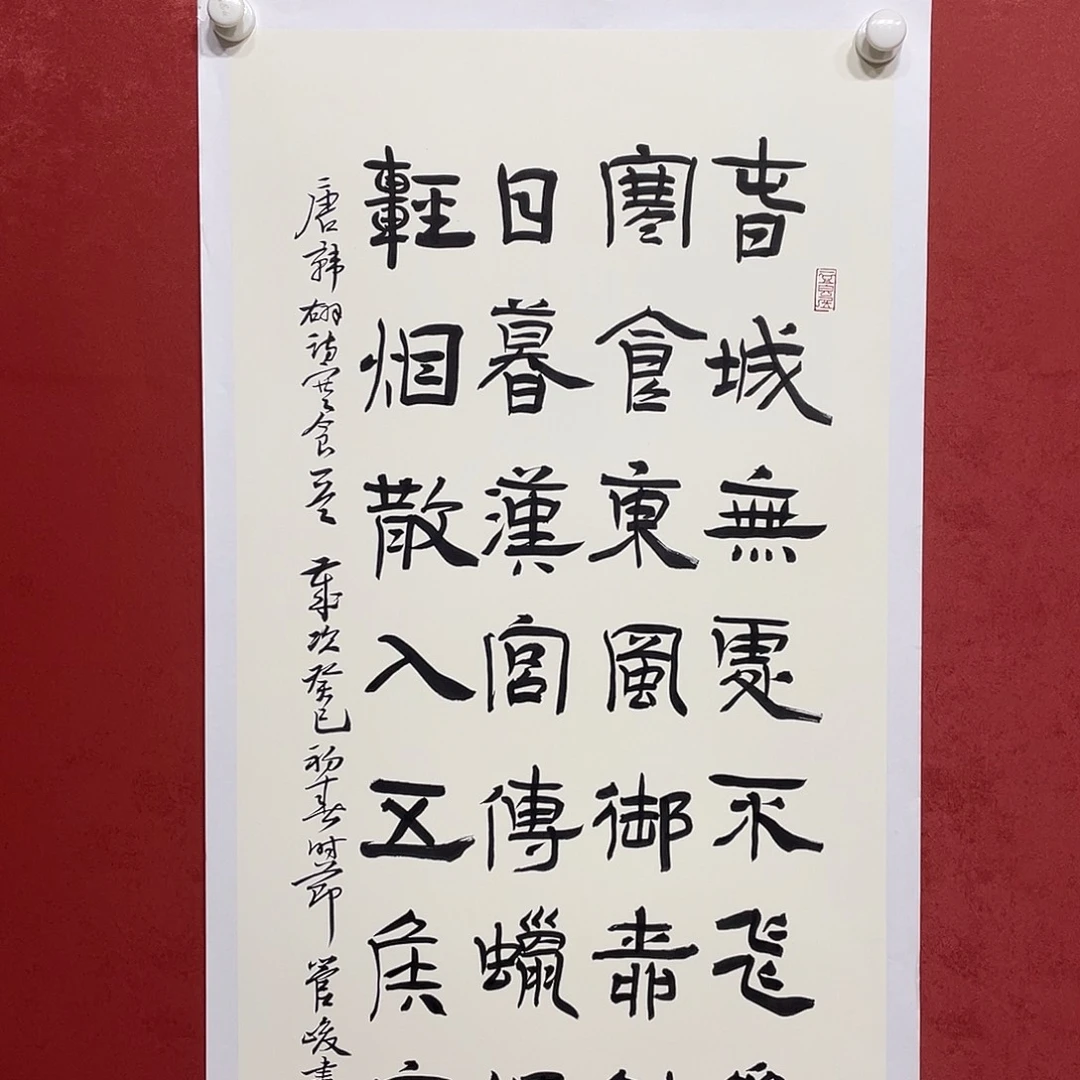 春城無處不飛
寒食東風御柳
日暮漢宮傳蠟
輕烟散入五侯
唐韓翃詩寒食一首 歲次癸巳初春時節 管峻書